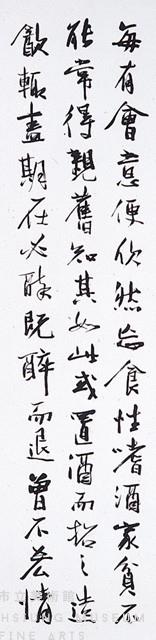 每有會意便欣然忘食性嗜酒家貧不
能常得親舊知其如此或置酒而招之造
飲輒盡期在必醉既醉而退曾不吝情
市立美術館
HSIUNG MUSEUM
FINE ARTS